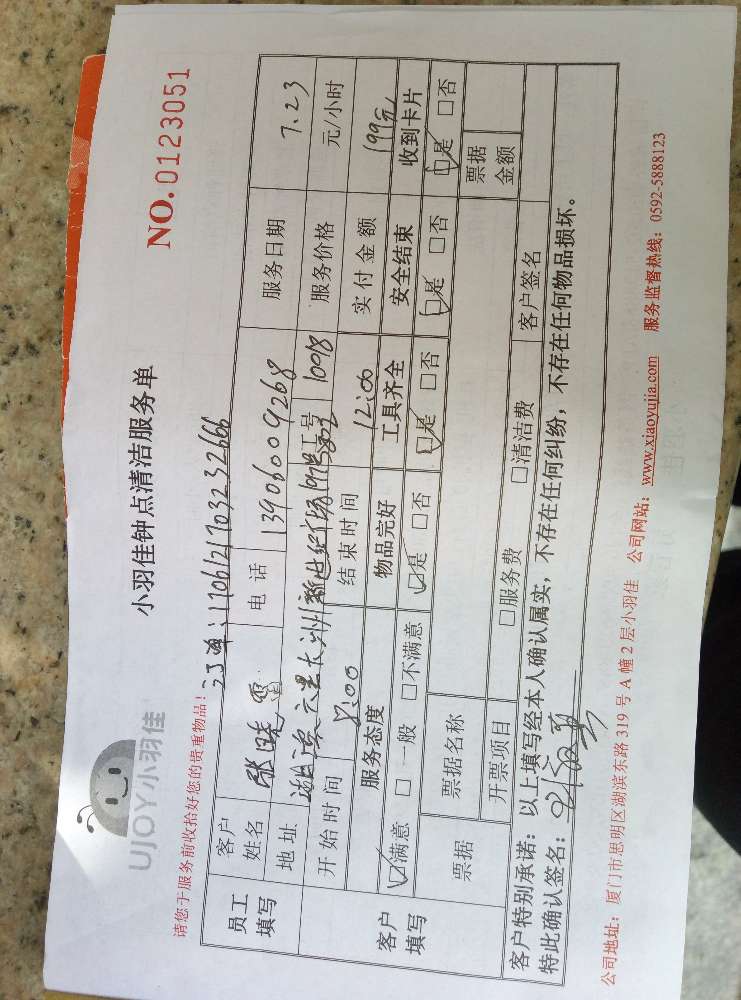 UJOY小羽佳
小羽佳钟点清洁服务单
NO.0123051
请您于服务前收拾好您的贵重物品!
1706121703232666
员工填写
客户姓名 张晓雪 电话 13906009268 服务日期 7.23
地址 工号 1098 服务价格 元/小时
开始时间 8:00 结束时间 12:00 实付金额 199元
客户填写
服务态度 物品完好 工具齐全 安全结束 收到卡片
☑满意 □一般 □不满意 ☑是 □否 ☑是 □否 ☑是 □否 ☑是 □否
票据 票据名称 票据金额
开票项目 □服务费 □清洁费 客户签名
客户特别承诺：以上填写经本人确认属实，不存在任何纠纷，不存在任何物品损坏。
特此确认签名：
公司地址：厦门市思明区湖滨东路319号A幢2层小羽佳 公司网站：www.xiaoyujia.com 服务监督热线：0592-5888123